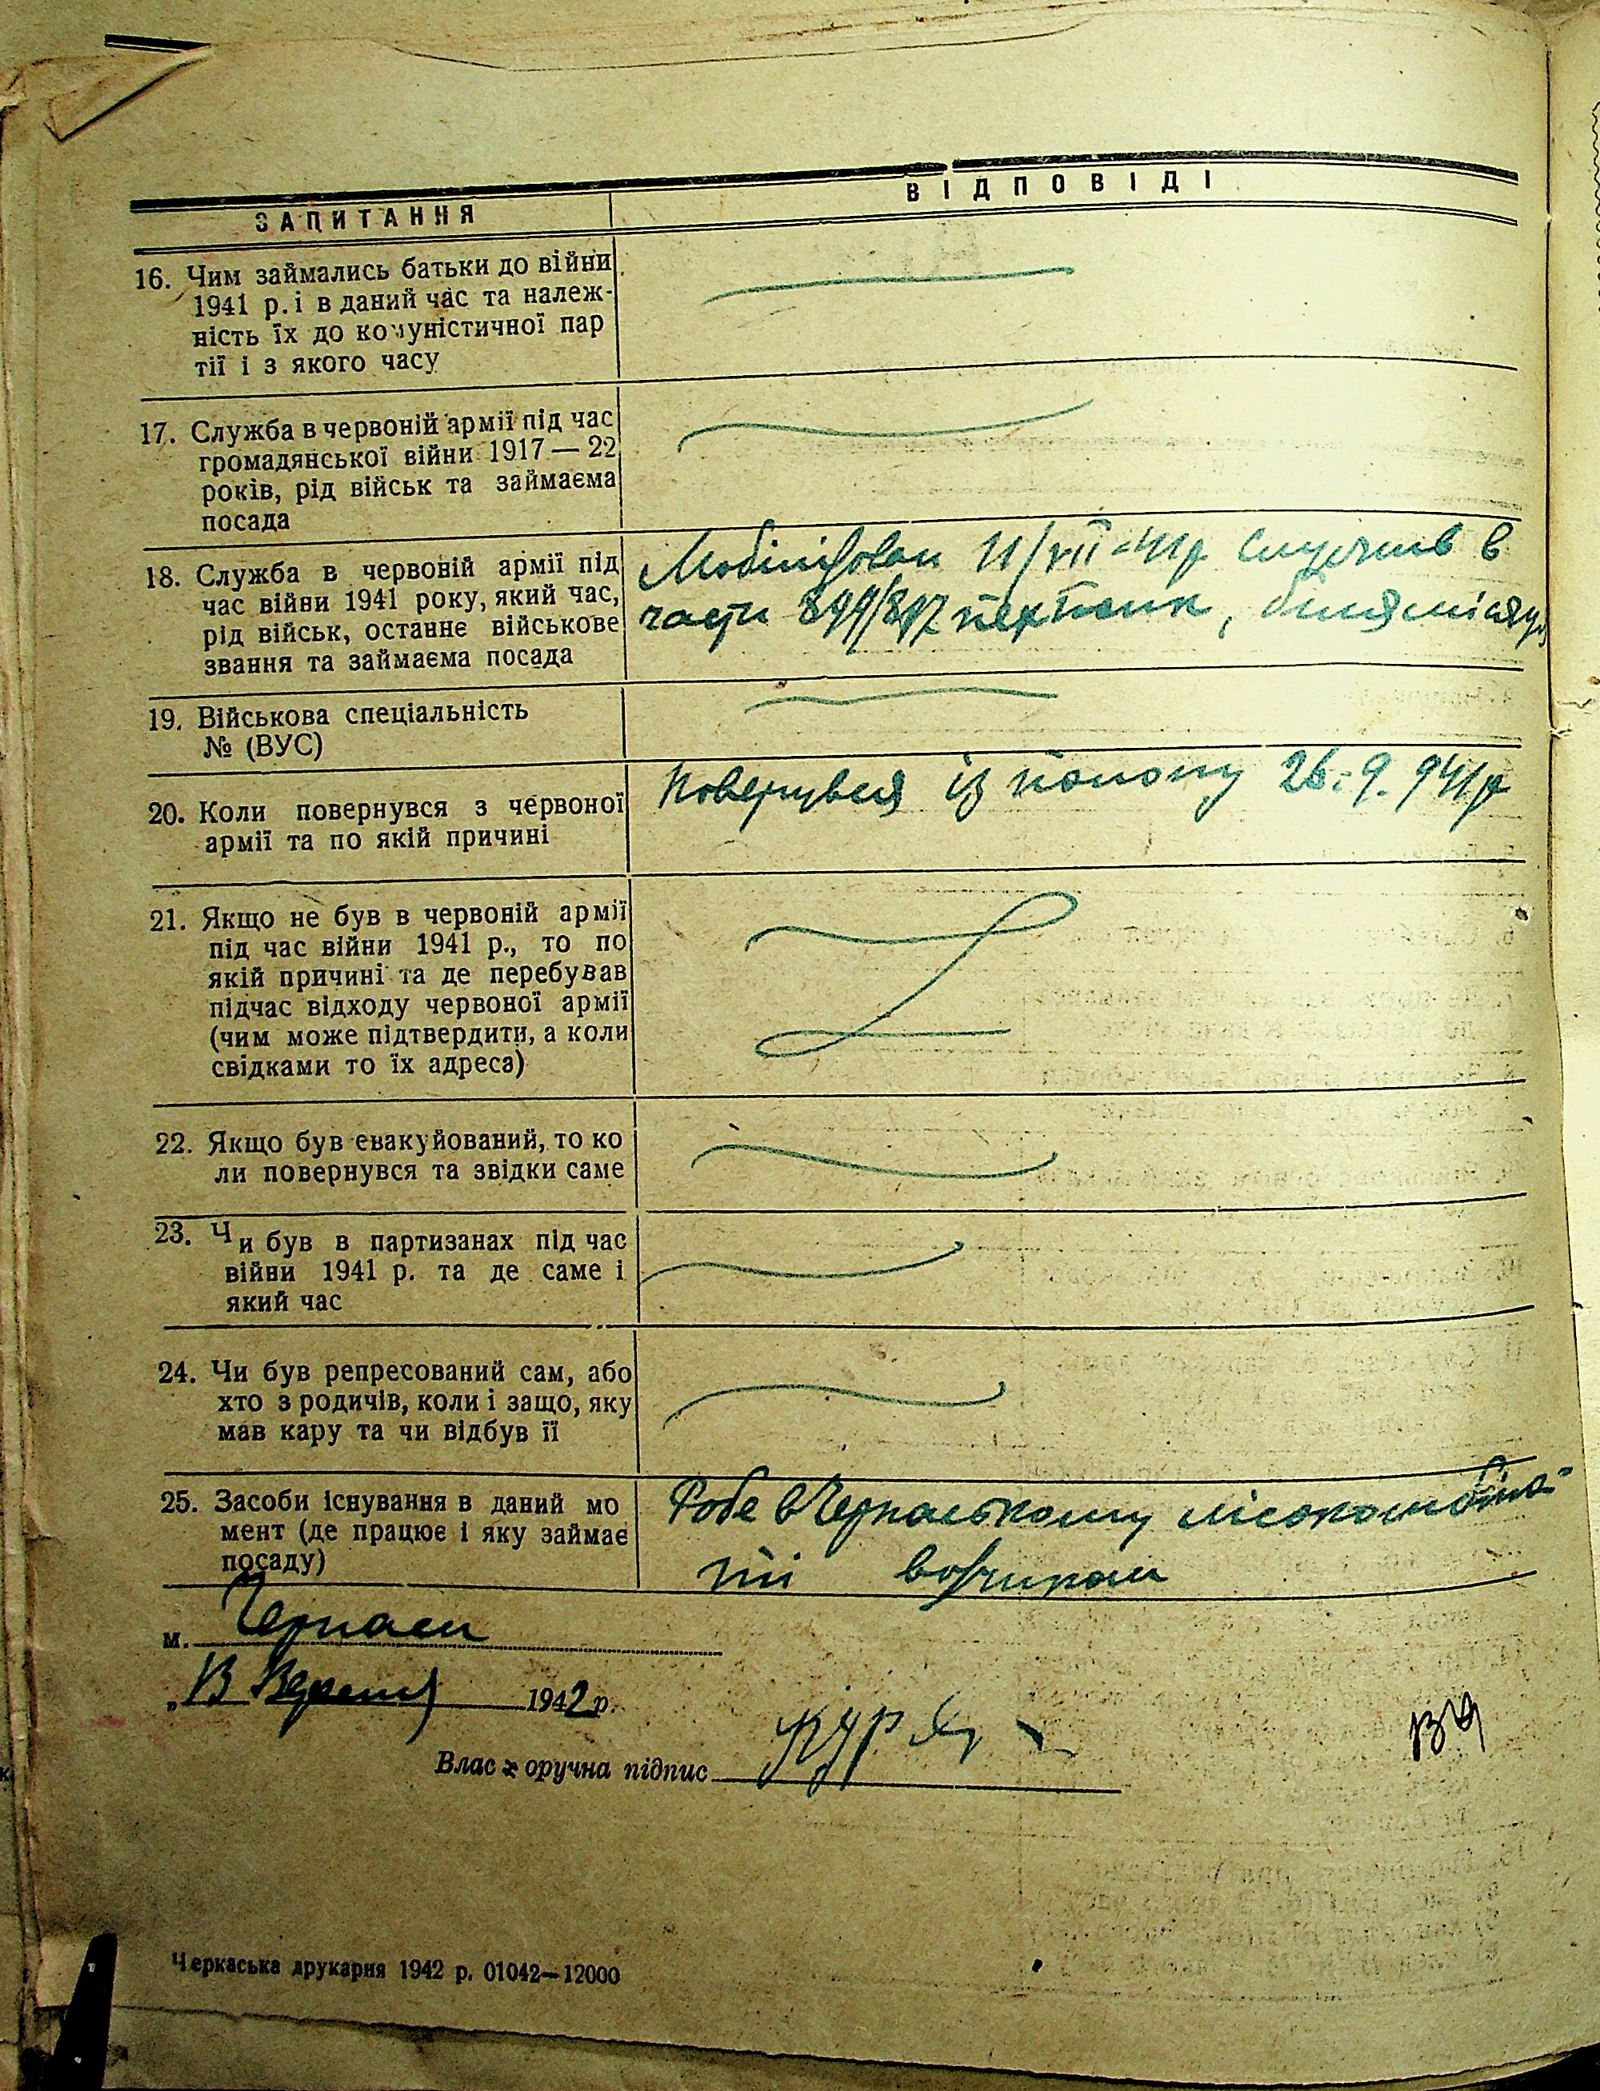 ЗАПИТАННЯ
ВІДПОВІДІ
16. Чим займались батьки до війни
1941 р. і в даний час та належ-
ність їх до комуністичної пар
тії і з якого часу
17. Служба в червоній армії під час
громадянської війни 1917—22
років, рід військ та займаєма
посада
18. Служба в червоній армії під
час війни 1941 року, який час,
рід військ, останнє військове
звання та займаєма посада
Мобілізован 11/VII-41р служив в
части пехполк, біля місяця
19. Військова спеціальність
№ (ВУС)
20. Коли повернувся з червоної
армії та по якій причині
Повернувся із полону 26.-9. 941р
21. Якщо не був в червоній армії
під час війни 1941 р., то по
якій причині та де перебував
підчас відходу червоної армії
(чим може підтвердити, а коли
свідками то їх адреса)
22. Якщо був евакуйований, то ко
ли повернувся та звідки саме
23. Чи був в партизанах під час
війни 1941 р. та де саме і
який час
24. Чи був репресований сам, або
хто з родичів, коли і защо, яку
мав кару та чи відбув її
25. Засоби існування в даний мо
мент (де працює і яку займає
посаду)
Робе в Черкаському міськомбіна-
ті возчиком
м. Черкаси
„13 Вересня 1942 р.
Власноручна підпис
Черкаська друкарня 1942 р. 01042—12000